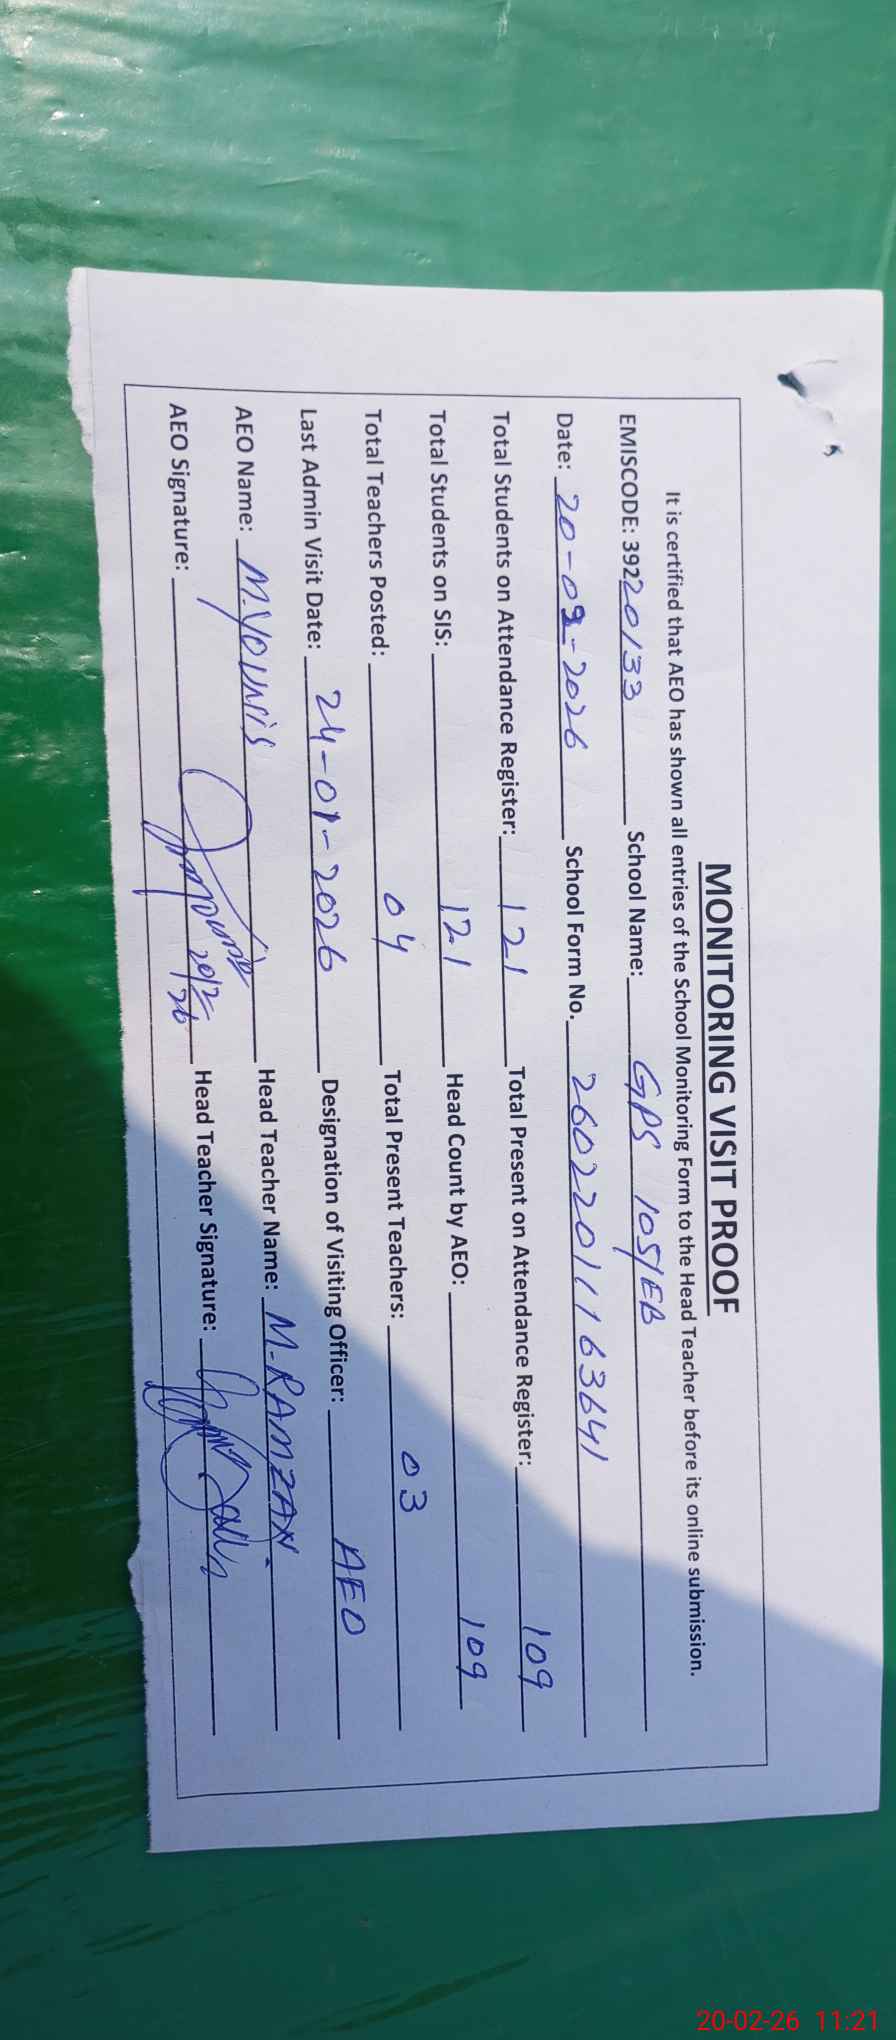 MONITORING VISIT PROOF
It is certified that AEO has shown all entries of the School Monitoring Form to the Head Teacher before its online submission.
EMISCODE: 39220133 School Name: GPS 105/EB
Date: 20-02-2026 School Form No. 26022011163641
Total Students on Attendance Register: 121 Total Present on Attendance Register: 109
Total Students on SIS: 121 Head Count by AEO: 109
Total Teachers Posted: 04 Total Present Teachers: 03
Last Admin Visit Date: 24-01-2026 Designation of Visiting Officer: AEO
AEO Name: M. Younis Head Teacher Name: M. RAMZAN.
AEO Signature: 20/2/26 Head Teacher Signature:
20-02-26 11:21